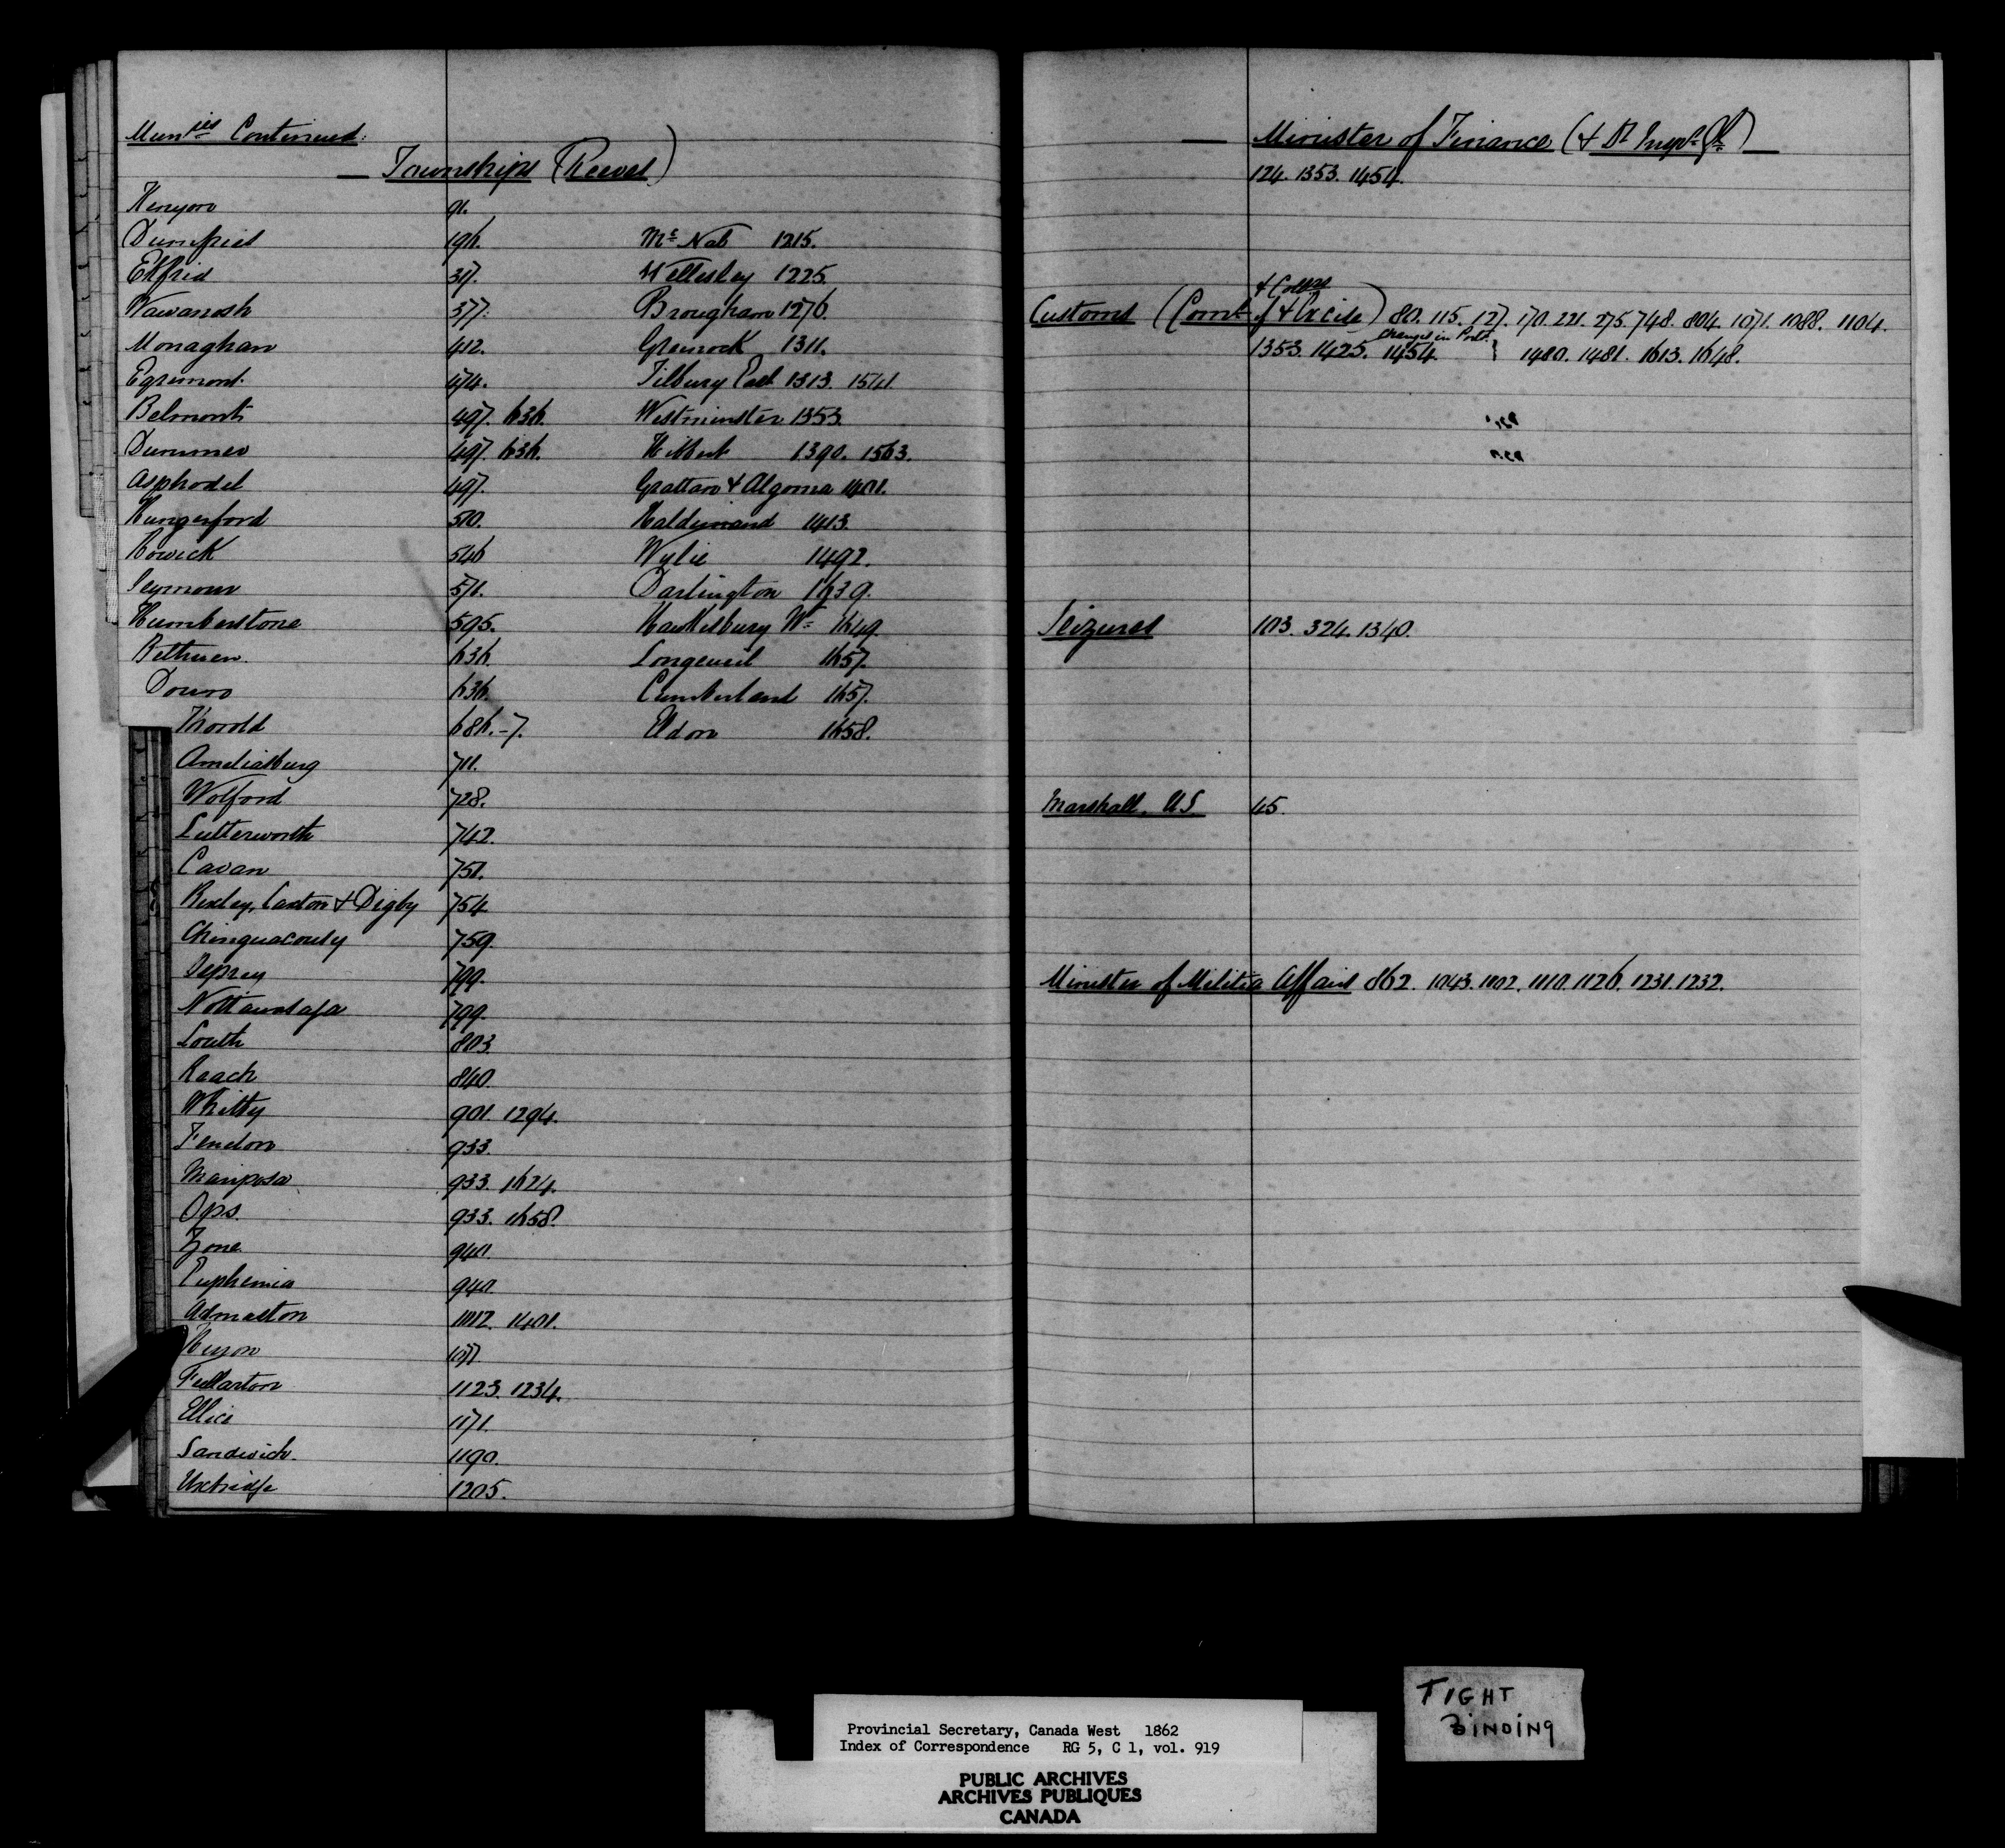 Mun^ies Continued:
— Townships (Reeves)
Kenyon 91.
Dumfries 196. McNab 1215.
Ekfrid 317. Wellesley 1225.
Wawanosh 377. Brougham 1276.
Monaghan 412. Greenock 1311.
Egremont. 474. Tilbury East 1313. 1541.
Belmont 497. 636. Westminster 1353.
Dummer 497. 636. Hibbert 1390. 1563.
Asphodel 497. Grattan & Algoma 1401.
Hungerford 510. Haldimand 1413.
Howick 546 Wylie 1492.
Seymour 571. Darlington 1639.
Humberstone 595. Hawkesbury W. 1649.
Methuen. 636. Longeuil 1657.
Douro 636. Cumberland 1657.
Thorold 686.-7. Eldon 1658.
Ameliasburg 711.
Wolford 728.
Lutterworth 742.
Cavan 751.
Bexley, Laxton & Digby 754
Chinguacousy 759.
Osprey 799.
Nottawasaga 799.
Louth 803.
Reach 840.
Whitby 901. 1294.
Fenelon 933.
Mariposa 933. 1624.
Ops. 933. 1658.
Zone 940.
Euphemia 940.
Admaston 1012. 1401.
Huron 1077.
Fullarton 1123. 1234.
Ellice 1171.
Sandwich. 1190.
Uxbridge 1205.
— Minister of Finance (& Dy Inspr. Gl.) —
124. 1353. 1454.
& Collrs
Customs (Comr. of & Excise) 80. 115. 127. 170. 221. 275. 748. 804. 1071. 1088. 1104.
Changes in Ports
1353. 1425. 1454. } 1480. 1481. 1613. 1648.
Seizures 103. 324. 1340.
Marshall, US. 45.
Minister of Militia Affairs 862. 1043. 1102. 1110. 1126. 1231. 1232.
TIGHT
BINDING
Provincial Secretary, Canada West 1862
Index of Correspondence RG 5, C 1, vol. 919
PUBLIC ARCHIVES
ARCHIVES PUBLIQUES
CANADA